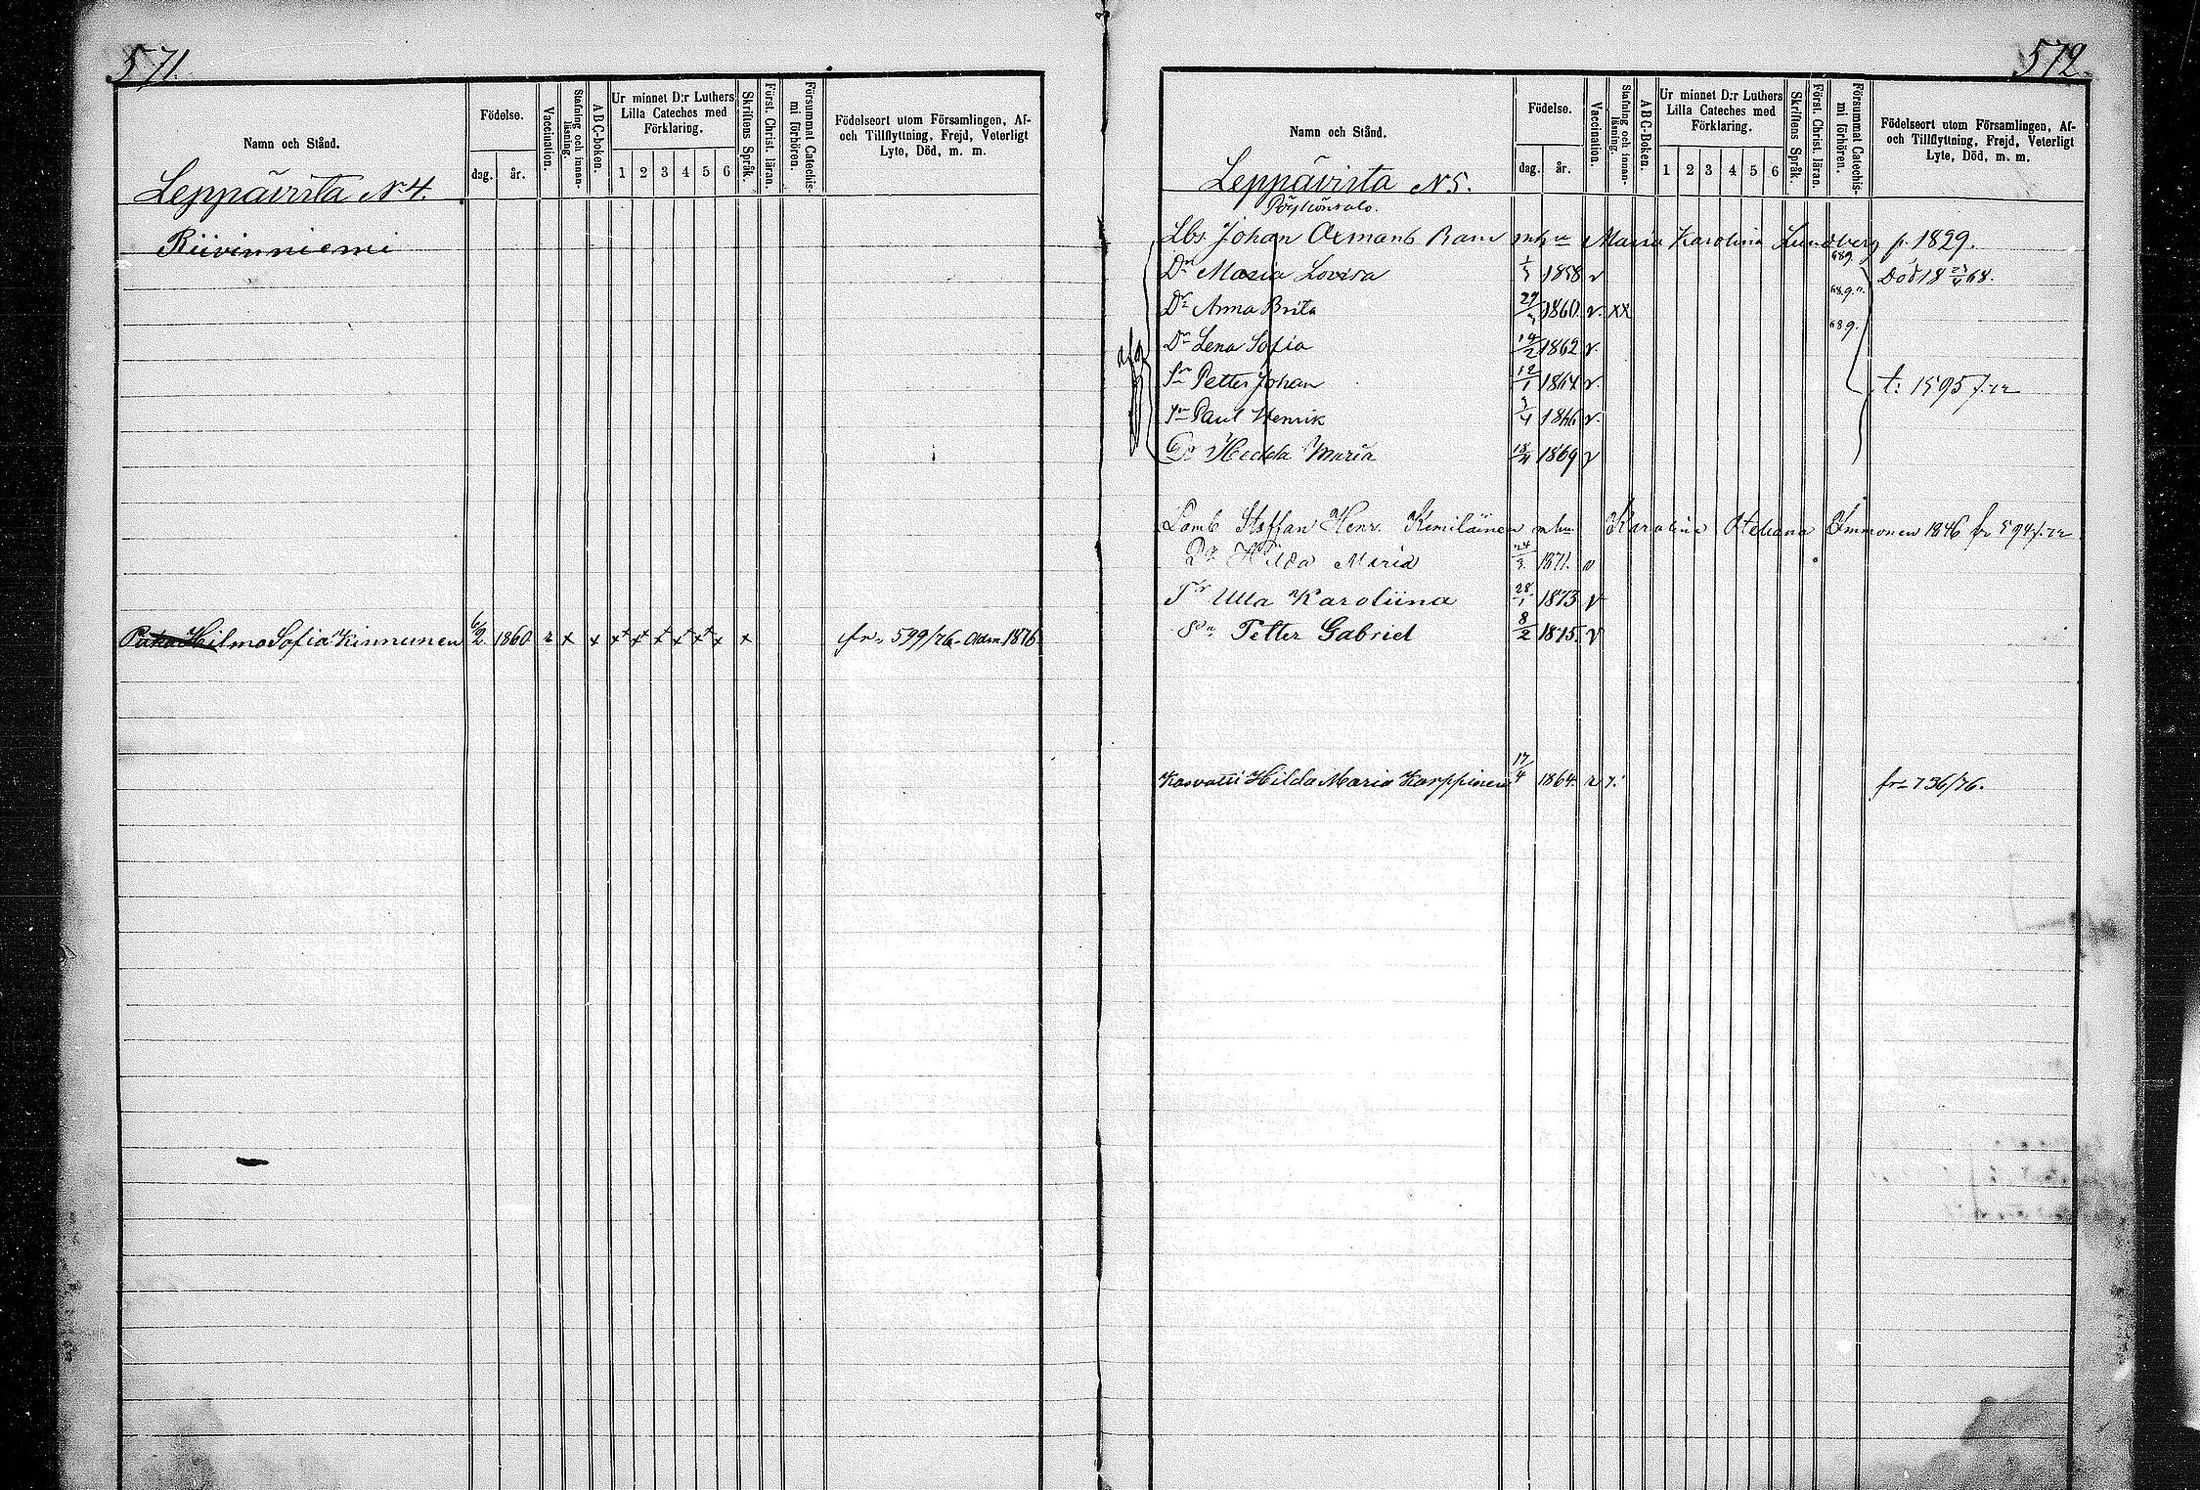 571.
Namn och Stånd.
Födelse.
dag.
år.
Vaccination.
Stafning och innan-läsning.
A B C-boken.
Ur minnet D:r Luthers Lilla Cateches med Förklaring.
1 2 3 4 5 6
Skriftens Språk.
Först. Christ. läran.
Försummat Catechis-mi förhören.
Födelseort utom Församlingen, Af- och Tillflyttning, Frejd, Veterligt Lyte, Död, m. m.
Leppävirta N 4.
Riivinniemi
Hilma Sofia Kinnunen 6/2 1860 fr 599/76 Adm. 1876
572.
Namn och Stånd.
Födelse.
dag.
år.
Vaccination.
Stafning och innan-läsning.
A B C-boken.
Ur minnet D:r Luthers Lilla Cateches med Förklaring.
1 2 3 4 5 6
Skriftens Språk.
Först. Christ. läran.
Försummat Catechis-mi förhören.
Födelseort utom Församlingen, Af- och Tillflyttning, Frejd, Veterligt Lyte, Död, m. m.
Leppävirta N 5.
Lbs. Johan Barn m h u Maria Karolina Lundberg f. 1829.
Dr Maria Lovisa 1858 v Död 18 68.
Dr Anna Brita 1860 v. xx
Dr Lena Sofia 1862 v.
Sn Petter Johan 12/1 1864 v. t: 595
Sn Paul Henrik 1866 v.
Dr Hedda Maria 1869 v
Staffan Henr. Kimiläinen m hu Karolina Immonen 1846 fr 594
Dr Hilda Maria 24/3 1871. v
Ulla Karoliina 28/1 1873 v
Son Petter Gabriel 8/2 1875. v
Kasvatti Hilda Maria Karppinen 17/4 1864. fr 736/76.